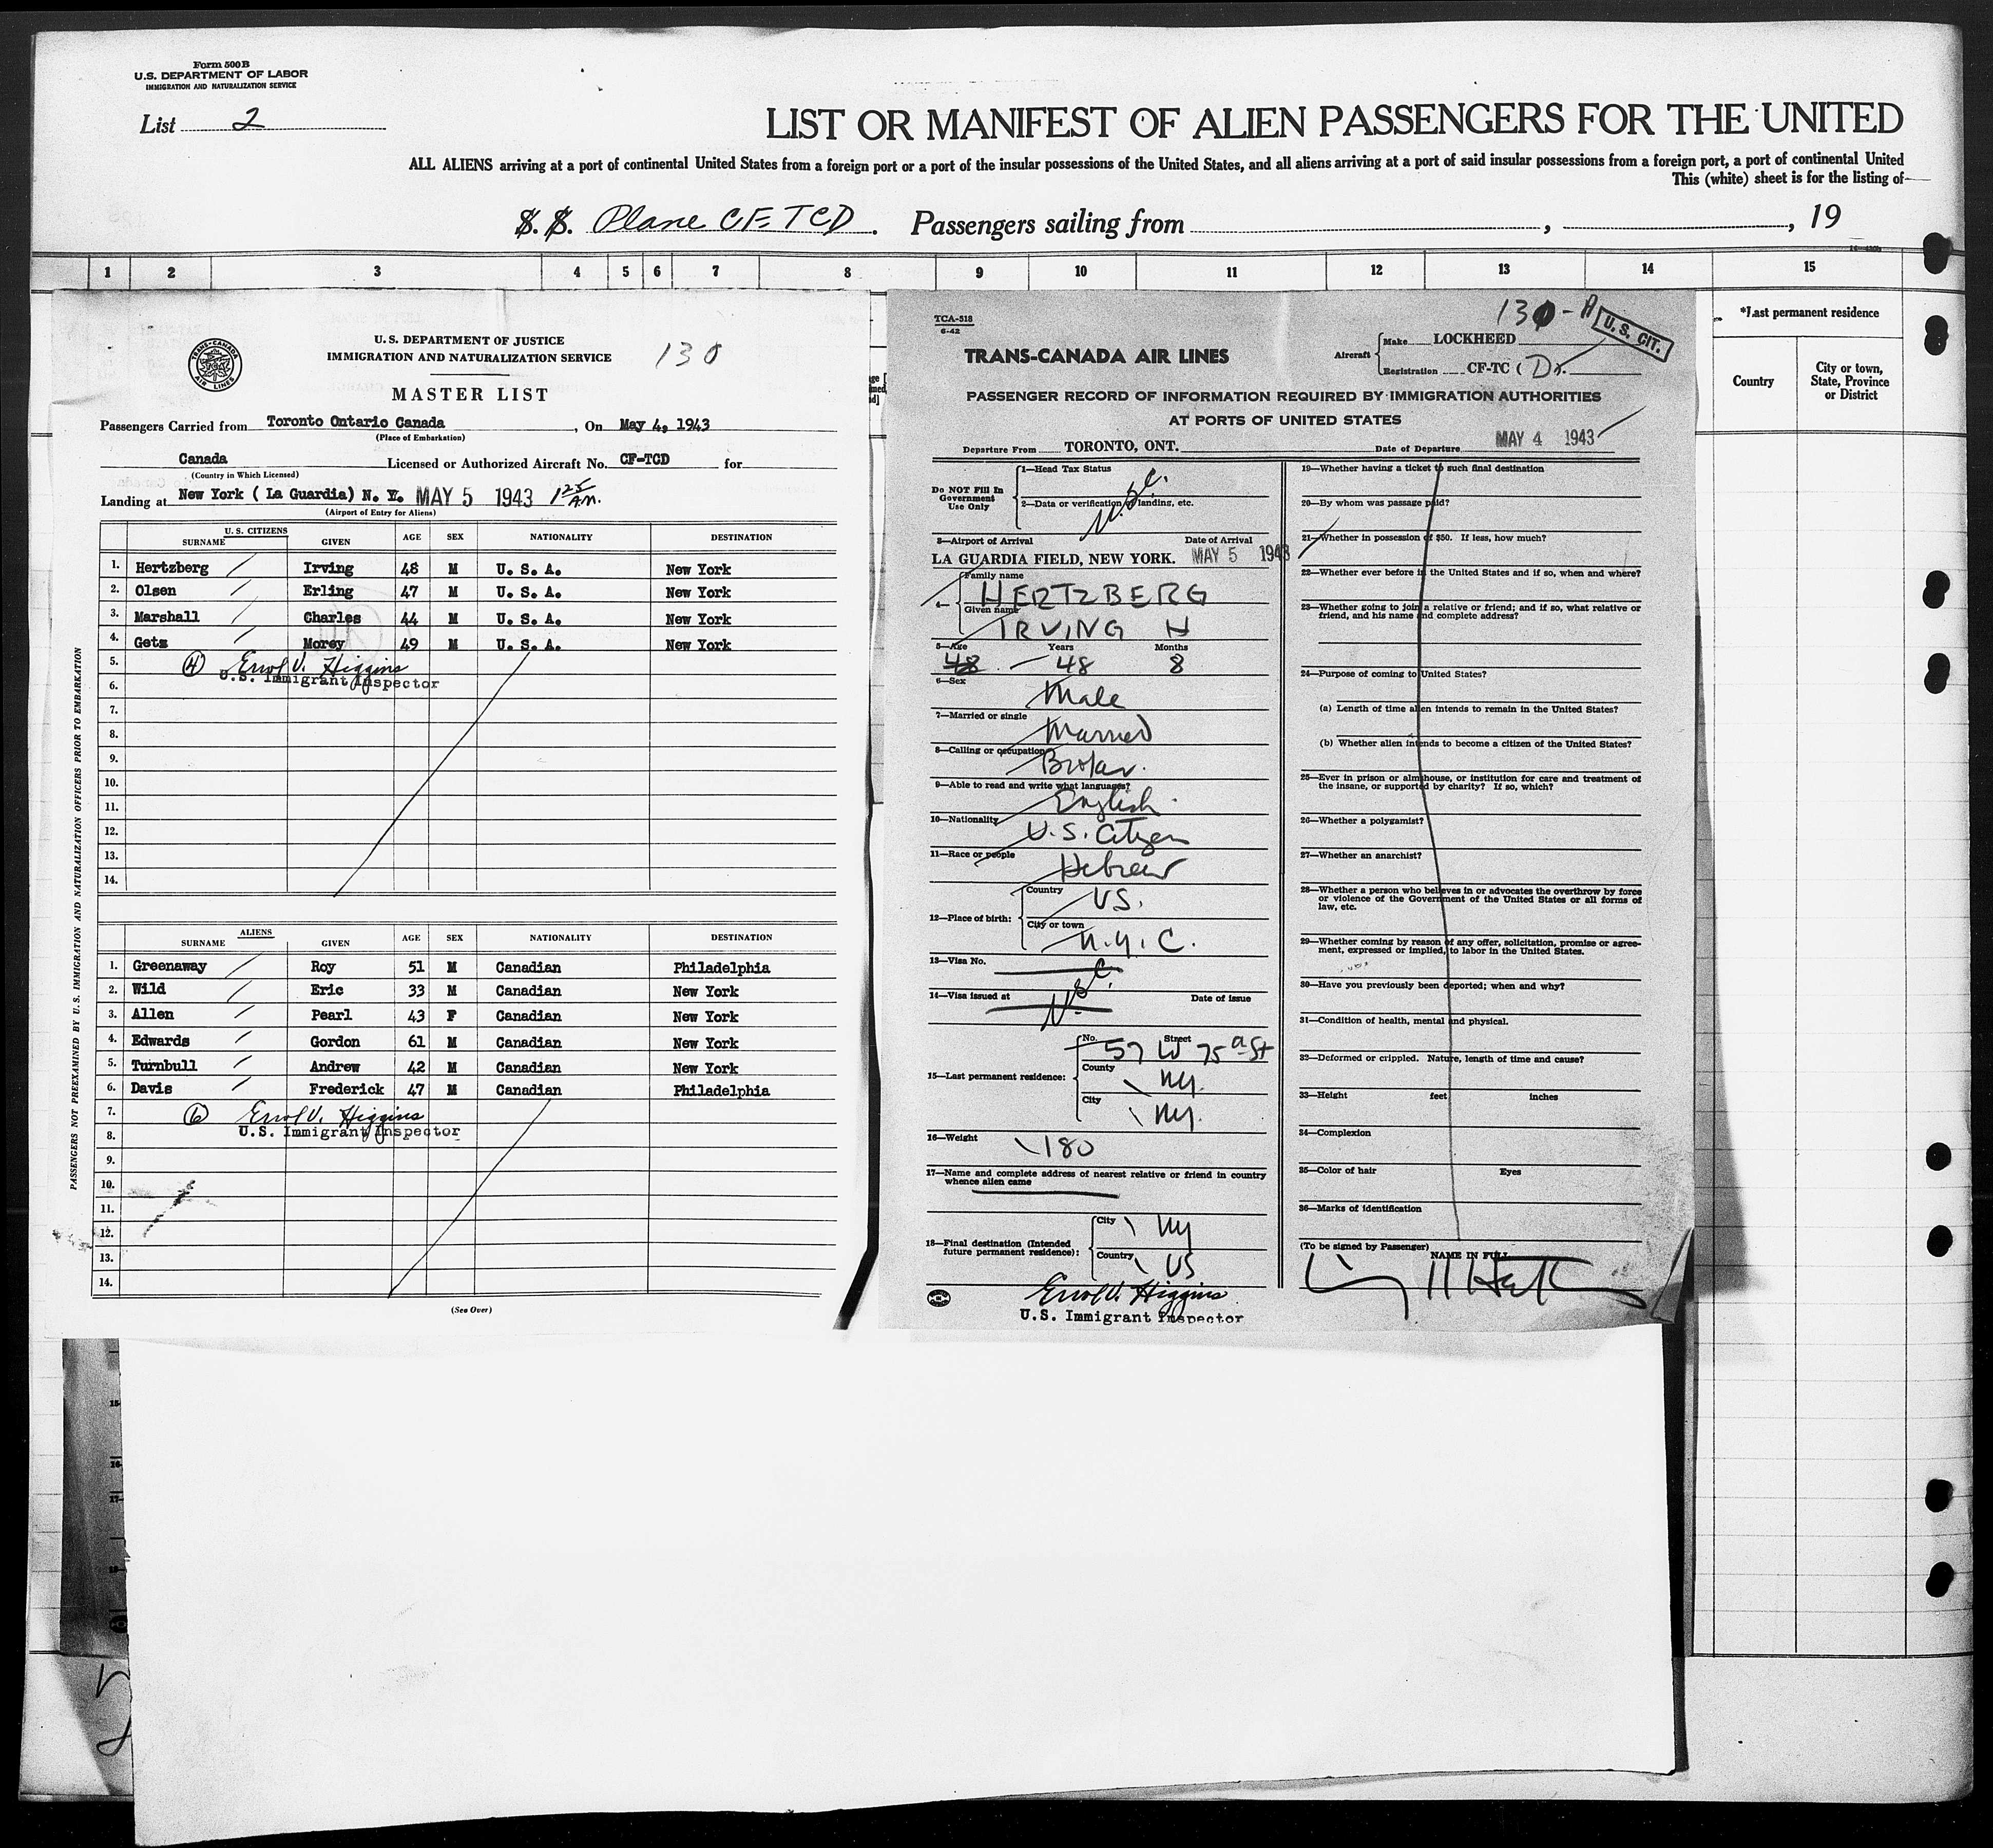 Form 500B
U.S. DEPARTMENT OF LABOR
IMMIGRATION AND NATURALIZATION SERVICE
List 2
LIST OR MANIFEST OF ALIEN PASSENGERS FOR THE UNITED
ALL ALIENS arriving at a port of continental United States from a foreign port or a port of the insular possessions of the United States, and all aliens arriving at a port of said insular possessions from a foreign port, a port of continental United
This (white) sheet is for the listing of
S. S. Plane CF-TCD. Passengers sailing from , , 19
1 2 3 4 5 6 7 8 9 10 11 12 13 14 15
*Last permanent residence
Country
City or town, State, Province or District
TRANS-CANADA AIR LINES
U.S. DEPARTMENT OF JUSTICE
IMMIGRATION AND NATURALIZATION SERVICE
130
MASTER LIST
Passengers Carried from Toronto Ontario Canada, On May 4, 1943
(Place of Embarkation)
Canada Licensed or Authorized Aircraft No. CF-TCD for
(Country in Which Licensed)
Landing at New York ( La Guardia) N. Y. MAY 5 1943 1 25 A.M.
(Airport of Entry for Aliens)
U. S. CITIZENS
SURNAME GIVEN AGE SEX NATIONALITY DESTINATION
1. Hertzberg Irving 48 M U. S. A. New York
2. Olsen Erling 47 M U. S. A. New York
3. Marshall Charles 44 M U. S. A. New York
4. Getz Morey 49 M U. S. A. New York
5. (4) Errol V. Higgins
U.S. Immigrant Inspector
6.
7.
8.
9.
10.
11.
12.
13.
14.
ALIENS
SURNAME GIVEN AGE SEX NATIONALITY DESTINATION
1. Greenaway Roy 51 M Canadian Philadelphia
2. Wild Eric 33 M Canadian New York
3. Allen Pearl 43 F Canadian New York
4. Edwards Gordon 61 M Canadian New York
5. Turnbull Andrew 42 M Canadian New York
6. Davis Frederick 47 M Canadian Philadelphia
7. (6) Errol V. Higgins
U.S. Immigrant Inspector
8.
9.
10.
11.
12.
13.
14.
(See Over)
PASSENGERS NOT PREEXAMINED BY U. S. IMMIGRATION AND NATURALIZATION OFFICERS PRIOR TO EMBARKATION
TCA-518
6-42
130-A
U. S. CIT.
TRANS-CANADA AIR LINES
Aircraft
Make LOCKHEED
Registration CF-TC ( D ).
PASSENGER RECORD OF INFORMATION REQUIRED BY IMMIGRATION AUTHORITIES
AT PORTS OF UNITED STATES
Departure From TORONTO, ONT. Date of Departure MAY 4 1943
Do NOT Fill In Government Use Only
1—Head Tax Status
2—Data or verification landing, etc.
3—Airport of Arrival Date of Arrival
LA GUARDIA FIELD, NEW YORK. MAY 5 1943
4—
Family name
HERTZBERG
Given name
IRVING H
5—Age Years Months
48 48 8
6—Sex
Male
7—Married or single
Married
8—Calling or occupation
Broker.
9—Able to read and write what languages?
English
10—Nationality
U.S. Citizen
11—Race or people
Hebrew
12—Place of birth:
Country
US.
City or town
N.Y.C.
13—Visa No.
14—Visa issued at Date of issue
15—Last permanent residence:
No. Street
57 W 75 St
County
NY.
City
NY.
16—Weight
180
17—Name and complete address of nearest relative or friend in country
whence alien came
18—Final destination (Intended
future permanent residence):
City
NY
Country
US
Errol V. Higgins
U.S. Immigrant Inspector
19—Whether having a ticket to such final destination
20—By whom was passage paid?
21—Whether in possession of $50. If less, how much?
22—Whether ever before in the United States and if so, when and where?
23—Whether going to join a relative or friend; and if so, what relative or
friend, and his name and complete address?
24—Purpose of coming to United States?
(a) Length of time alien intends to remain in the United States?
(b) Whether alien intends to become a citizen of the United States?
25—Ever in prison or almshouse, or institution for care and treatment of
the insane, or supported by charity? If so, which?
26—Whether a polygamist?
27—Whether an anarchist?
28—Whether a person who believes in or advocates the overthrow by force
or violence of the Government of the United States or all forms of
law, etc.
29—Whether coming by reason of any offer, solicitation, promise or agree-
ment, expressed or implied, to labor in the United States.
30—Have you previously been deported; when and why?
31—Condition of health, mental and physical.
32—Deformed or crippled. Nature, length of time and cause?
33—Height feet inches
34—Complexion
35—Color of hair Eyes
36—Marks of identification
(To be signed by Passenger)
NAME IN FULL